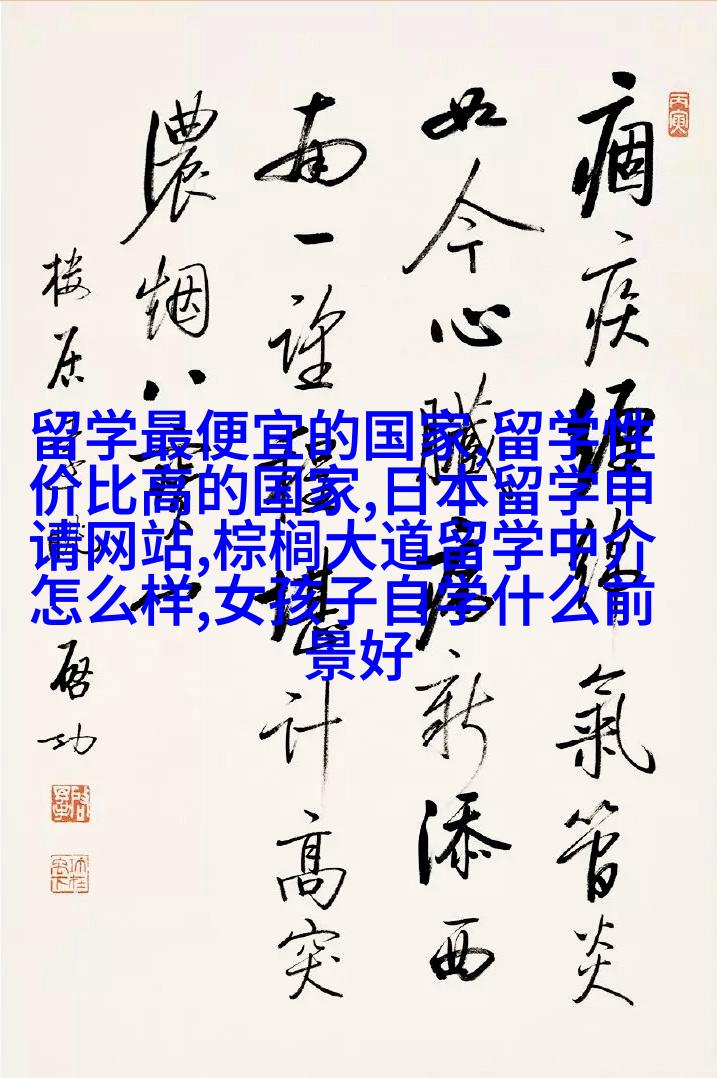 丙寅
痼疾纏綿氣管炎
如今心臟病新添西
南一望程堪計高突
濃烟八寶山
樓居
啓功
留学最便宜的国家,留学性
价比高的国家,日本留学申
请网站,棕榈大道留学中介
怎么样,女孩子自学什么前
景好